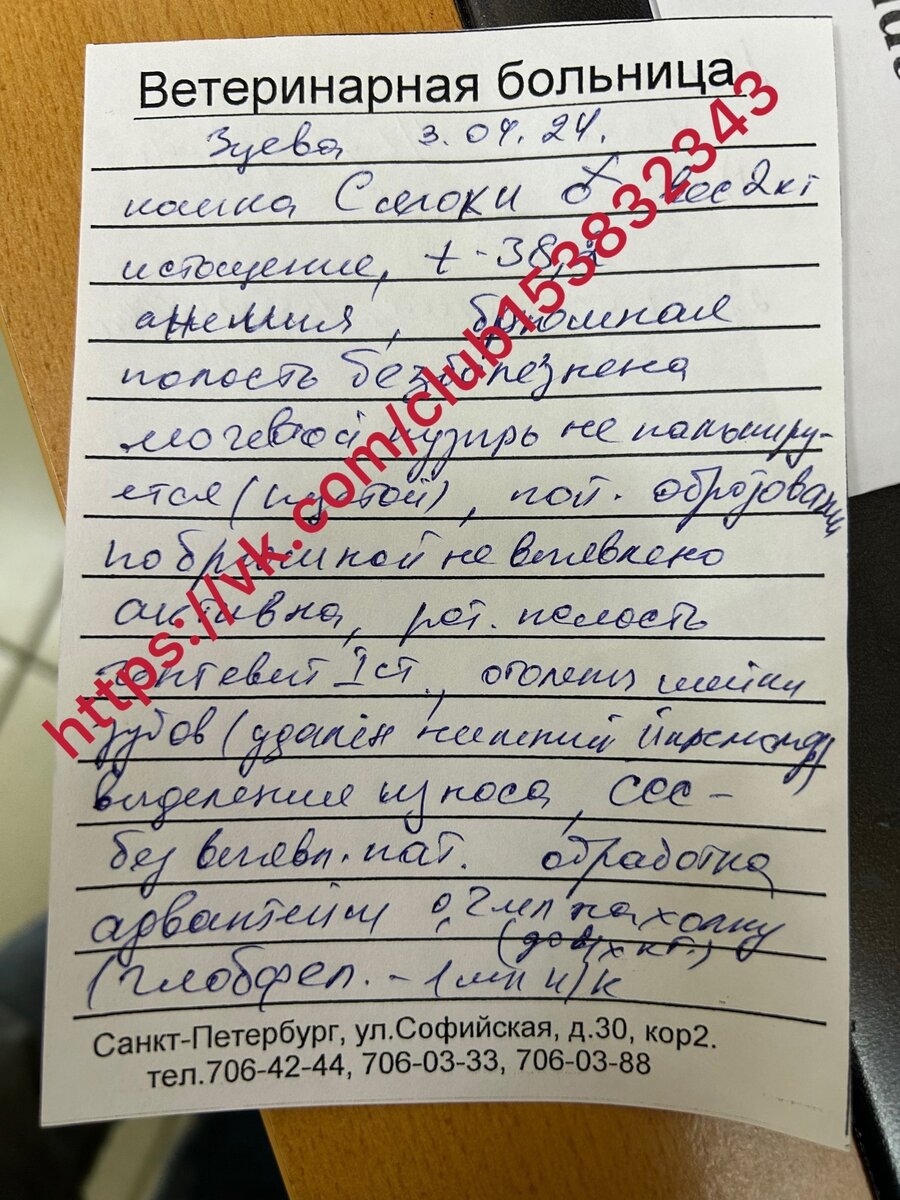 Ветеринарная больница
Зуева 3.04.24.
кошка Смоки вес 2 кг
истощение, t - 38,
анемия, брюшная
полость безболезнена
мочевой пузырь не пальпиру-
ется (пустой), пат. образований
по брюшной не выявлено
активна, рот. полость
гингевит I ст., оголены шейки
зубов (удалён нижний премоляр)
выделения из носа, ССС -
без выявл. пат. обработка
адвантейдж 0,2 мл на холку
(до 4х кг.)
(глобфел. - 1 мл п/к
Санкт-Петербург, ул.Софийская, д.30, кор2.
тел.706-42-44, 706-03-33, 706-03-88
https://vk.com/club153832343